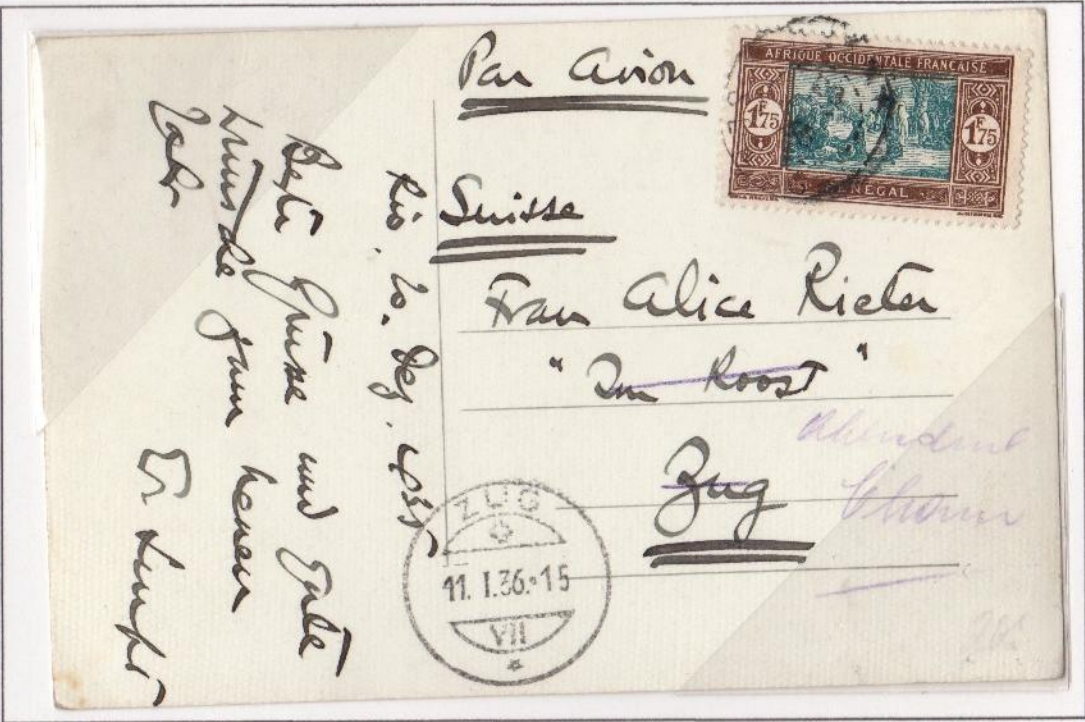 Par Avion
AFRIQUE OCCIDENTALE FRANÇAISE
1F75
1F75
SÉNÉGAL
Suisse
Frau Alice Rieter
"Im Roost"
Zug
Cham
ZUG
11. I. 36.-15
VII
Rio, 20. Dez. 1935
Beste Grüsse und Gute
Wünsche zum neuen
Jahr